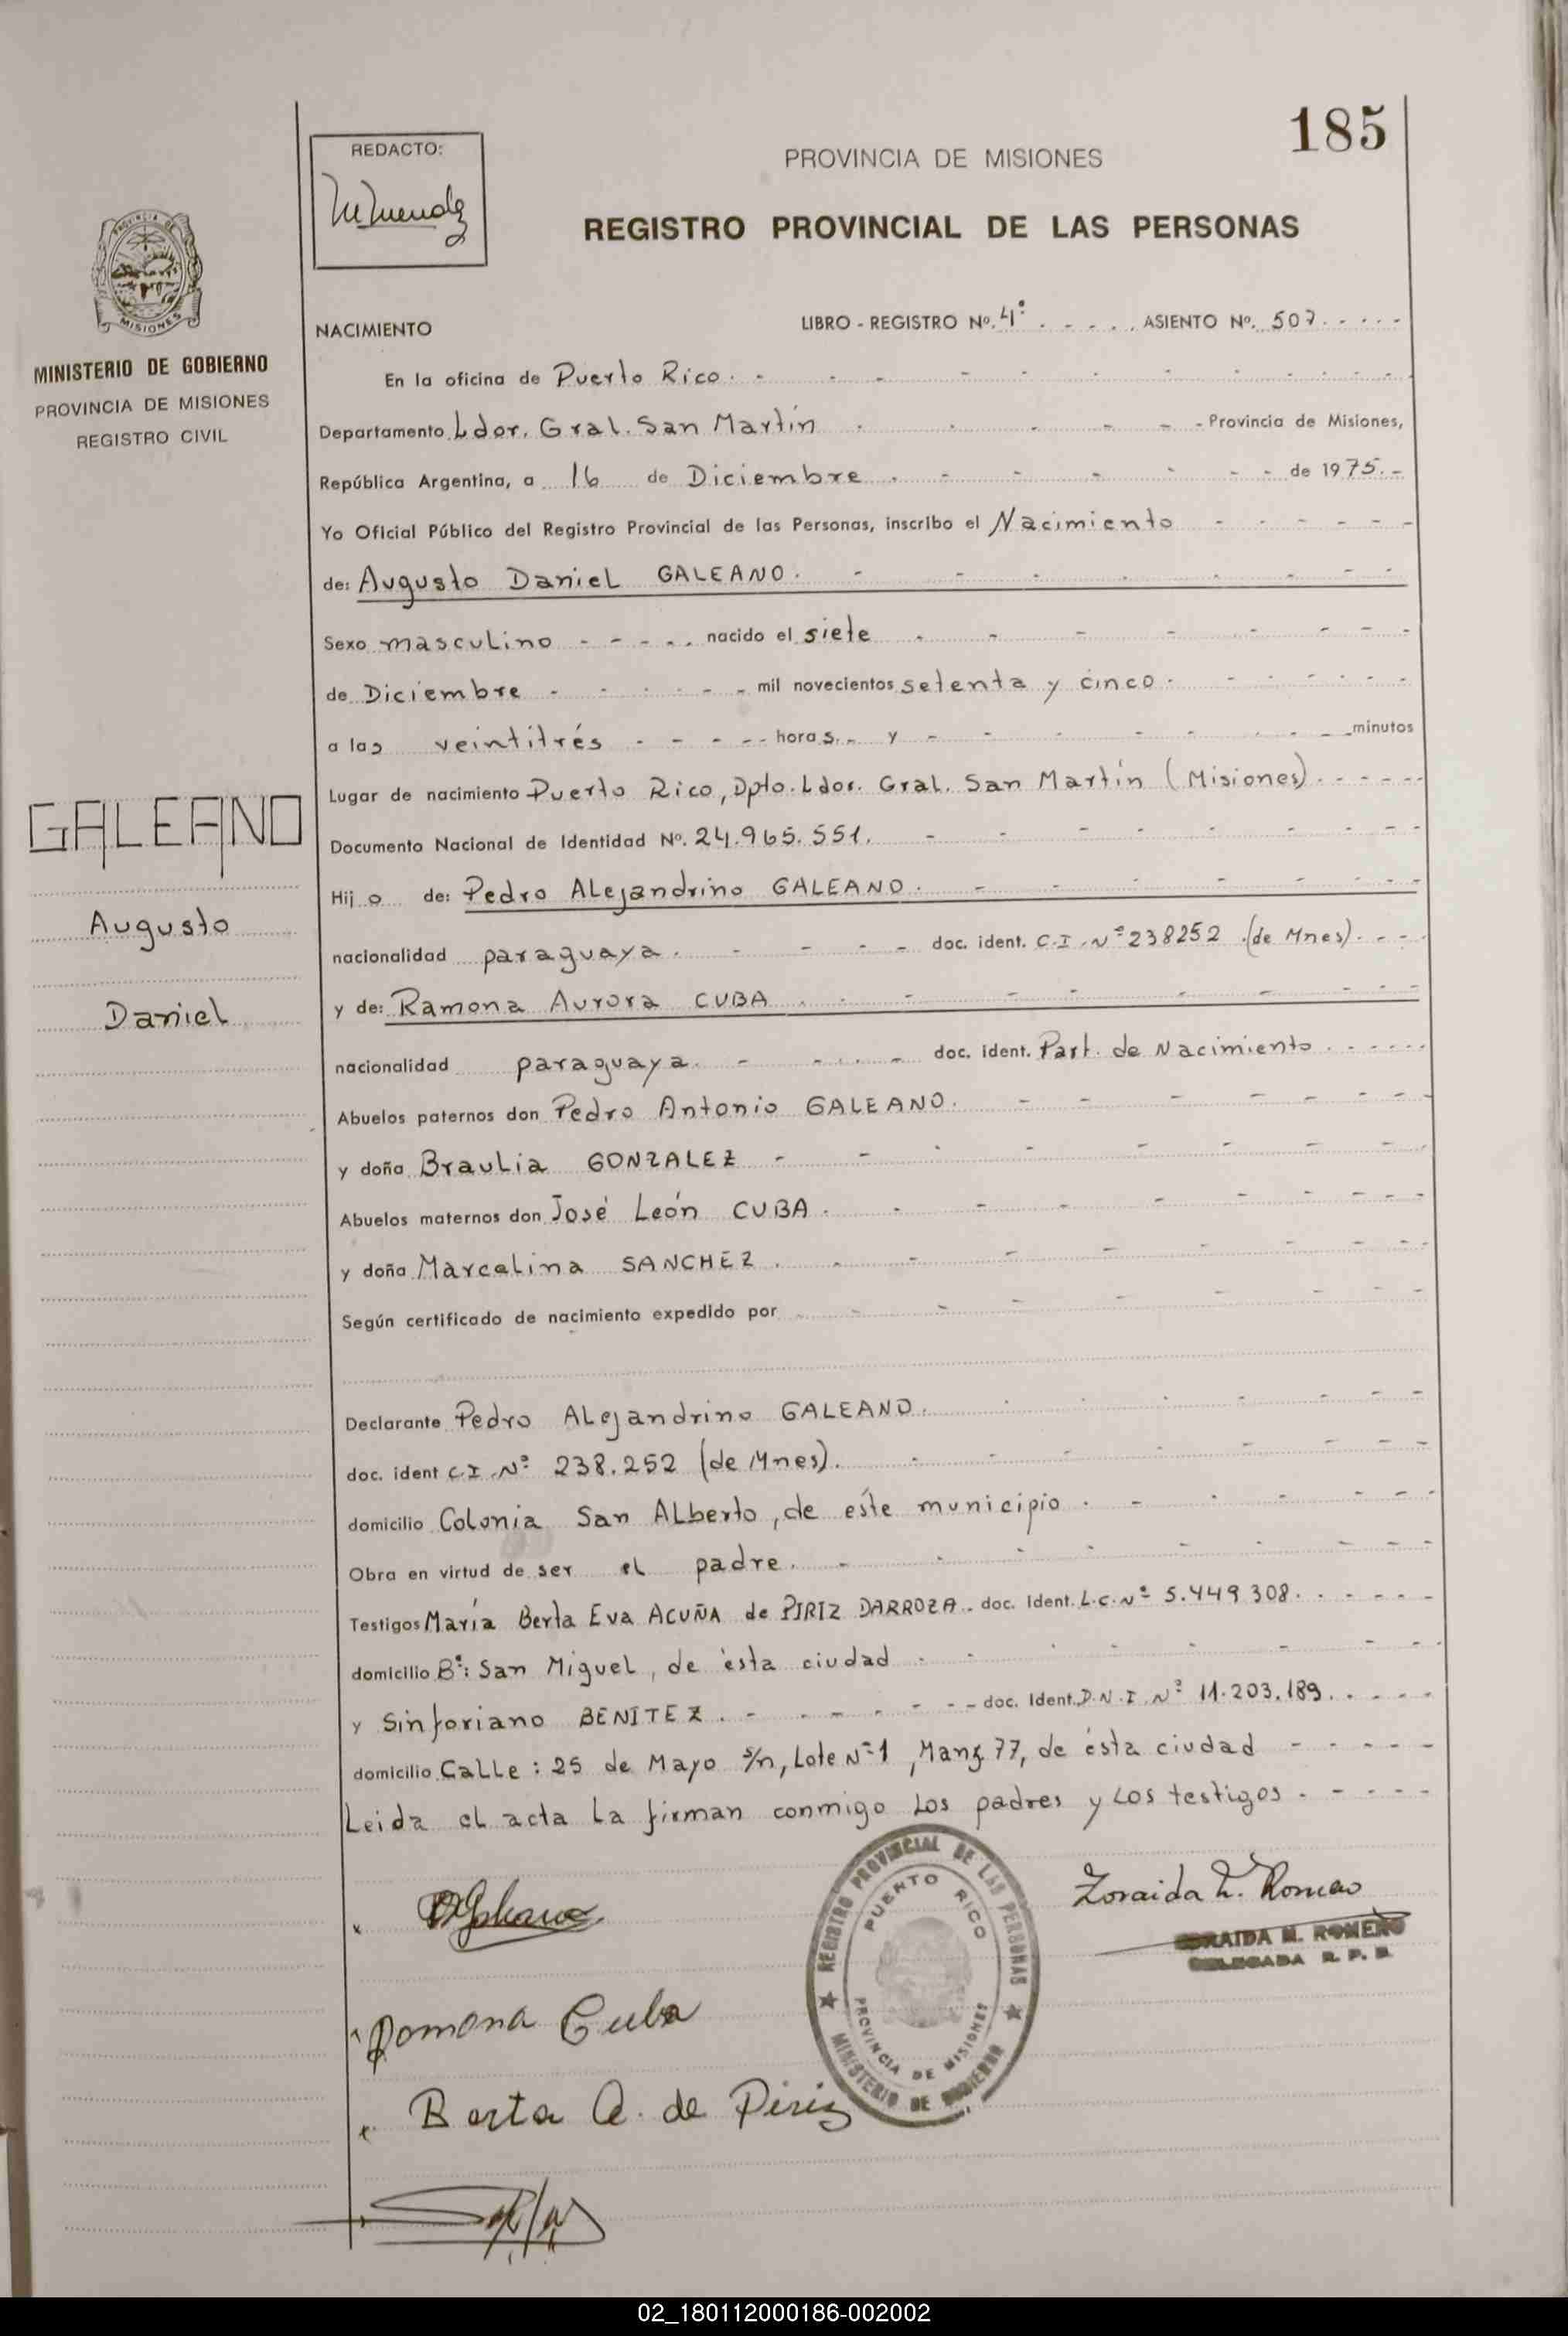 185
REDACTO:
PROVINCIA DE MISIONES
REGISTRO PROVINCIAL DE LAS PERSONAS
PROVINCIA DE
MISIONES
MINISTERIO DE GOBIERNO
PROVINCIA DE MISIONES
REGISTRO CIVIL
GALEANO
Augusto
Daniel
NACIMIENTO LIBRO - REGISTRO Nº. 4º ASIENTO Nº. 507
En la oficina de Puerto Rico. -
Departamento Ldor. Gral. San Martín - Provincia de Misiones,
República Argentina, a 16 de Diciembre de 1975. -
Yo Oficial Público del Registro Provincial de las Personas, inscribo el Nacimiento
de: Augusto Daniel GALEANO.
Sexo masculino nacido el siete
de Diciembre mil novecientos setenta y cinco.
a las veintitrés horas y minutos
Lugar de nacimiento Puerto Rico, Dpto. Ldor. Gral. San Martín (Misiones).
Documento Nacional de Identidad Nº. 24.965.551.
Hijo de: Pedro Alejandrino GALEANO.
nacionalidad paraguaya. doc. ident. C.I. Nº 238252 (de Mnes).
y de: Ramona Aurora CUBA
nacionalidad paraguaya. doc. ident. Part. de Nacimiento
Abuelos paternos don Pedro Antonio GALEANO.
y doña Braulia GONZALEZ
Abuelos maternos don José León CUBA.
y doña Marcelina SANCHEZ.
Según certificado de nacimiento expedido por
Declarante Pedro Alejandrino GALEANO.
doc. ident C.I. Nº 238.252 (de Mnes).
domicilio Colonia San Alberto, de éste municipio.
Obra en virtud de ser el padre.
Testigos María Berta Eva ACUÑA de PIRIZ DARROZA. doc. ident. L.C. Nº 5.449.308.
domicilio Bº: San Miguel, de ésta ciudad
y Sinforiano BENITEZ. doc. Ident. D.N.I. Nº 11.203.189.
domicilio Calle: 25 de Mayo s/n, Lote Nº 1, Manz. 77, de ésta ciudad
Leida el acta la firman conmigo los padres y los testigos.
Ramona Cuba
Berta A. de Piriz
REGISTRO PROVINCIAL DE LAS PERSONAS
PUERTO RICO
PROVINCIA DE MISIONES
MINISTERIO DE GOBIERNO
Zoraida M. Romero
ZORAIDA M. ROMERO
DELEGADA R. P. P.
02_180112000186-002002